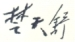 楚天舒